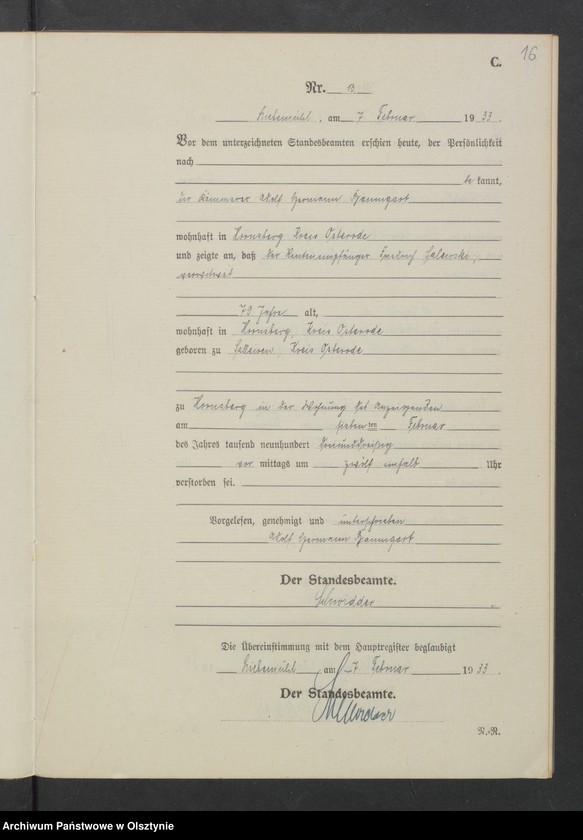 16
C.
Nr. 13
Liebemühl, am 7 Februar 1933.
Vor dem unterzeichneten Standesbeamten erschien heute, der Persönlichkeit
nach
be kannt,
der Kämmerer Adolf Hermann Baumgart
wohnhaft in Hornsberg Kreis Osterode
und zeigte an, daß der Rentenempfänger
verwitwet
79 Jahre alt,
wohnhaft in Hornsberg, Kreis Osterode
geboren zu Kreis Osterode
zu Hornsberg in der Wohnung des Anzeigenden
am siebenten Februar
des Jahres tausend neunhundert dreiunddreißig
vor mittags um zwölf einhalb Uhr
verstorben sei.
Vorgelesen, genehmigt und unterschrieben
Adolf Hermann Baumgart
Der Standesbeamte.
Schwidder
Die Übereinstimmung mit dem Hauptregister beglaubigt
Liebemühl am 7 Februar 1933.
Der Standesbeamte.
Schwidder
N.-R.
Archiwum Państwowe w Olsztynie